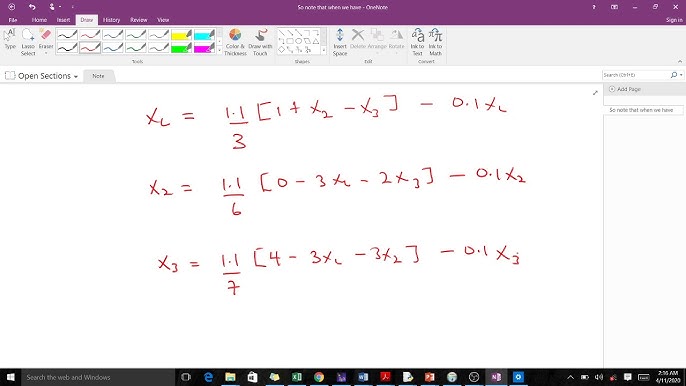 So note that when we have - OneNote
Sign in
File Home Insert Draw History Review View
Type Lasso Select Eraser
Color & Thickness Draw with Touch Shapes Insert Space Delete Arrange Rotate Ink to Text Ink to Math
Tools Shapes Edit Convert
Open Sections Note
Search (Ctrl+E)
Add Page
So note that when we have
x₁ = 1.1/3 [1 + x₂ - x₃] - 0.1x₁
x₂ = 1.1/6 [0 - 3x₁ - 2x₃] - 0.1x₂
x₃ = 1.1/7 [4 - 3x₁ - 3x₂] - 0.1x₃
Search the web and Windows
2:16 AM
4/11/2020